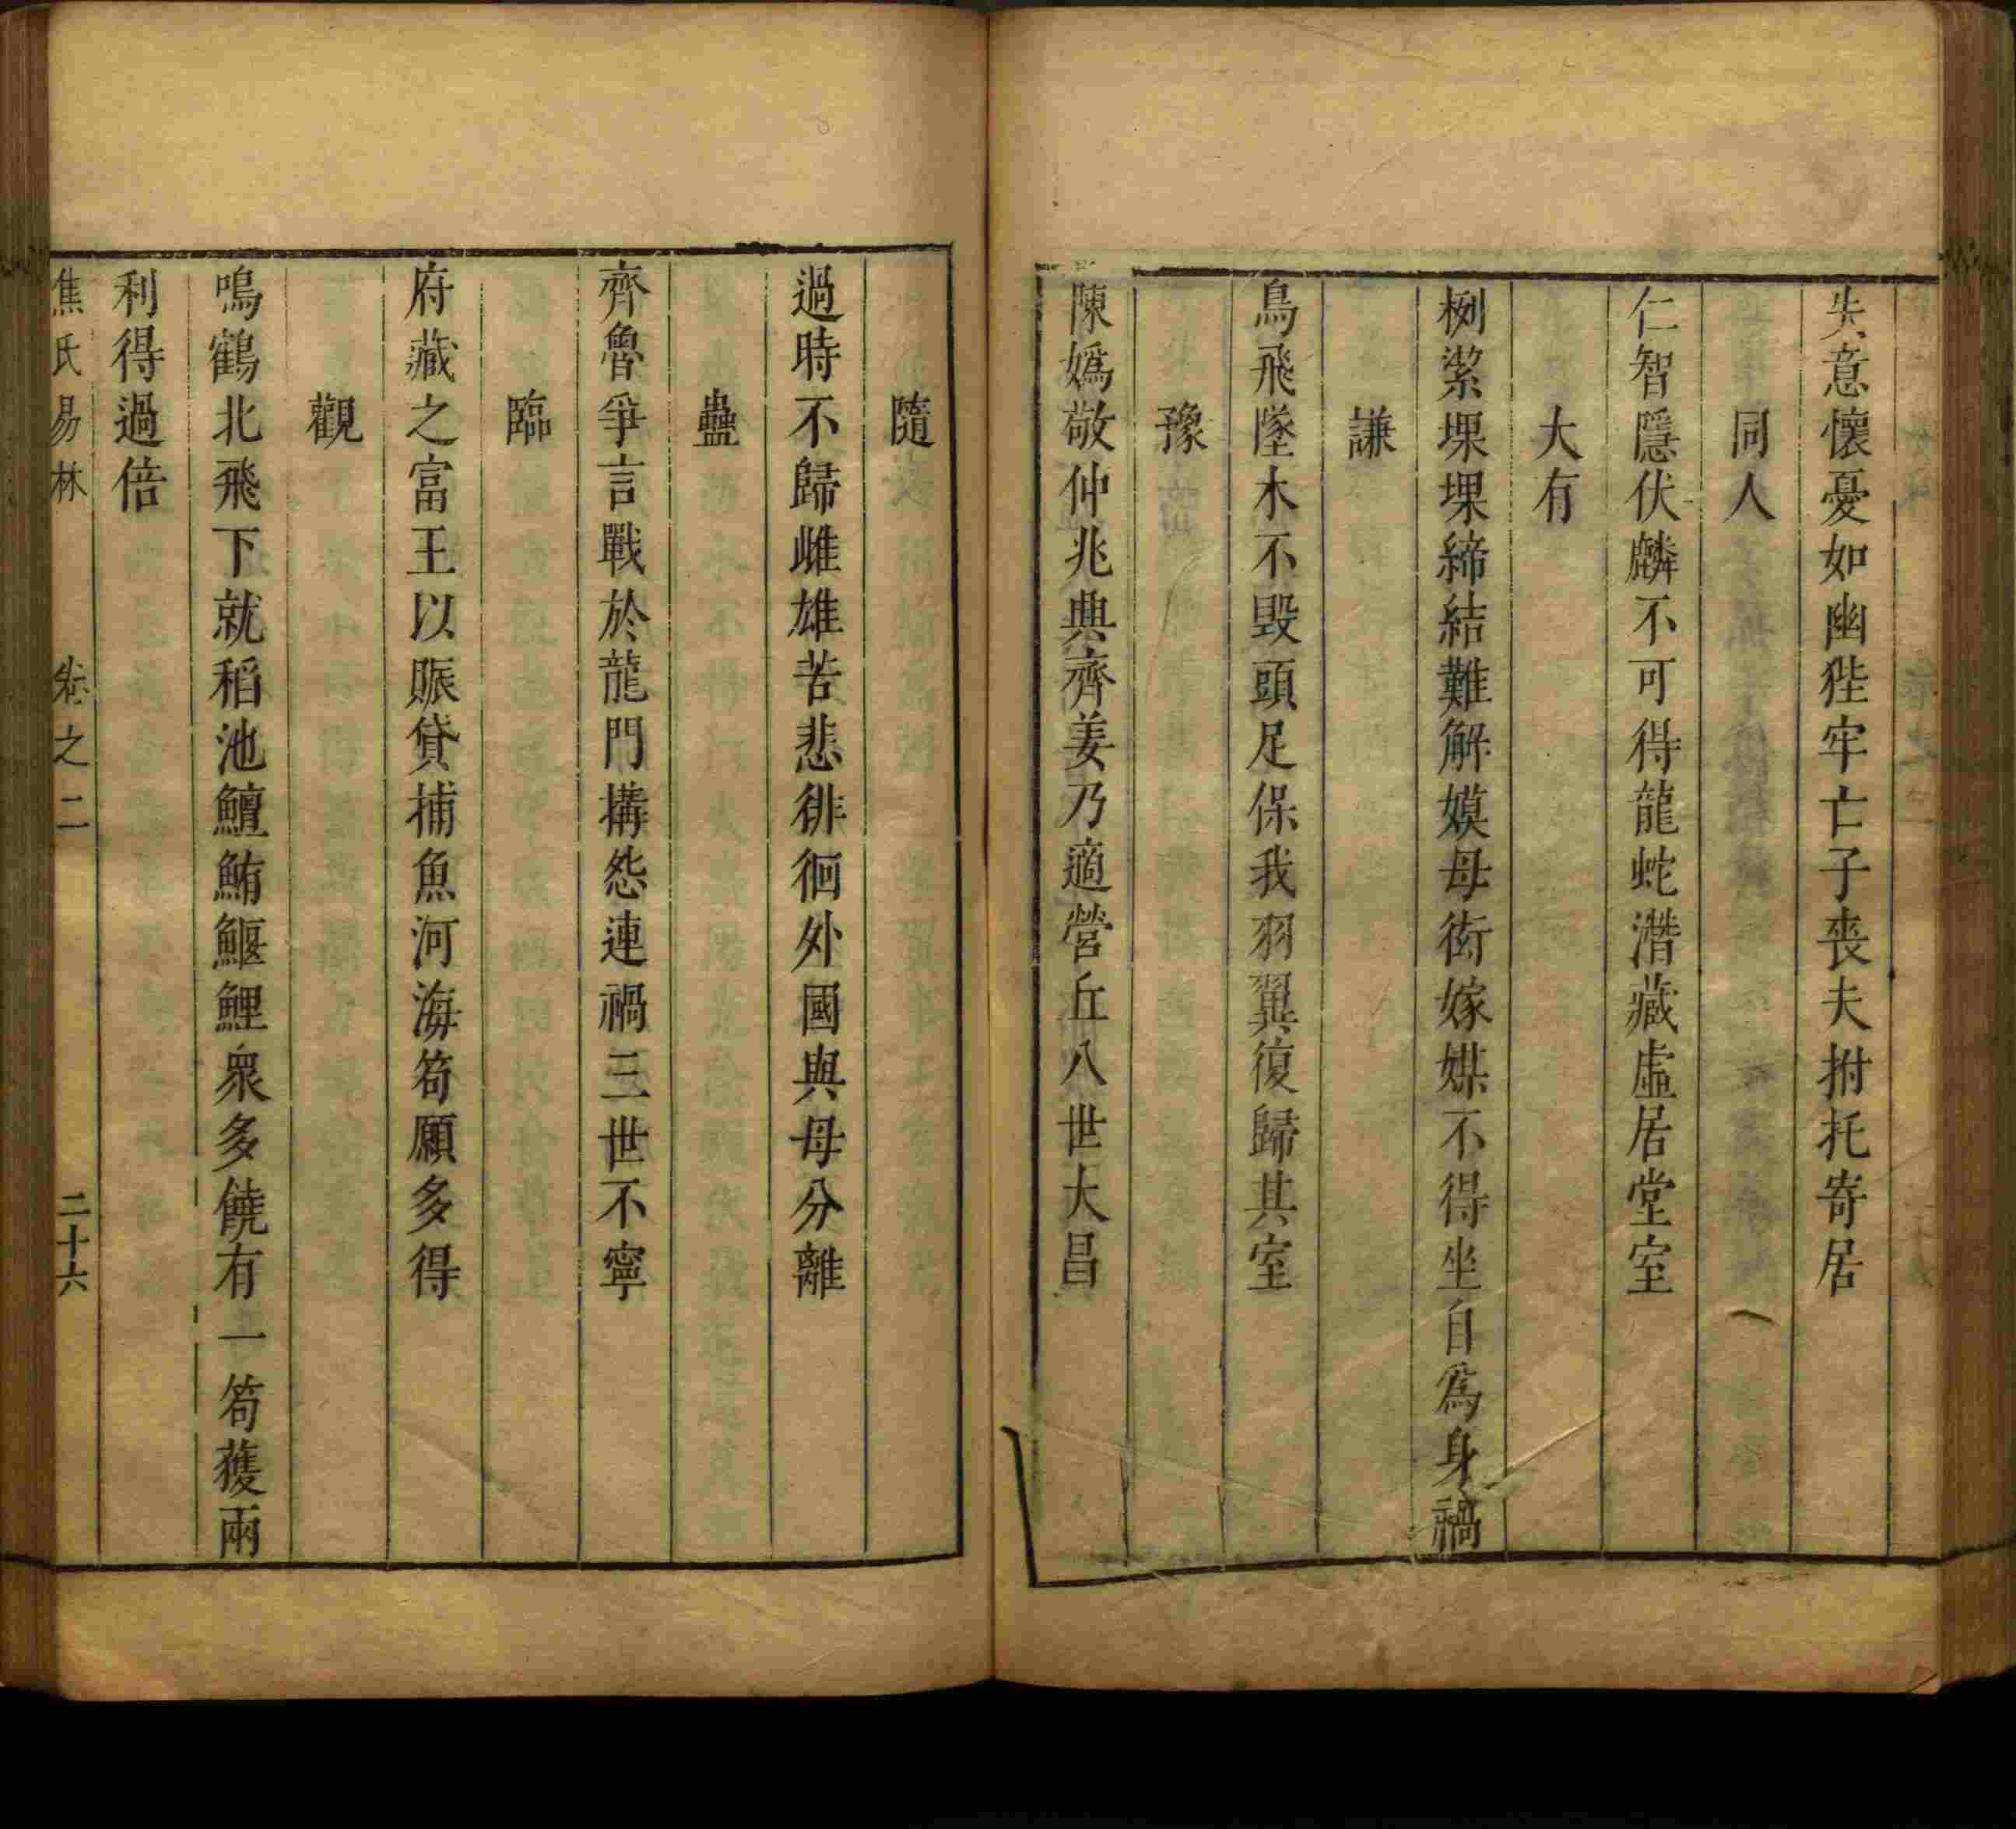 失意懷憂如幽狴牢亡子喪夫拊托寄居
同人
仁智隱伏麟不可得龍蛇潛藏虛居堂室
大有
栵潔堁堁締結難解嫫母衒嫁媒不得坐自為身禍
謙
鳥飛墜木不毀頭足保我羽翼復歸其室
豫
陳媯敬仲兆興齊姜乃適營丘八世大昌
隨
過時不歸雌雄苦悲徘徊外國與母分離
蠱
齊魯爭言戰於龍門搆怨連禍三世不寧
臨
府藏之富王以賑貸捕魚河海笱願多得
觀
鳴鶴北飛下就稻池鱣鮪鰋鯉衆多饒有一笱獲兩
利得過倍
焦氏易林 卷之二 二十六